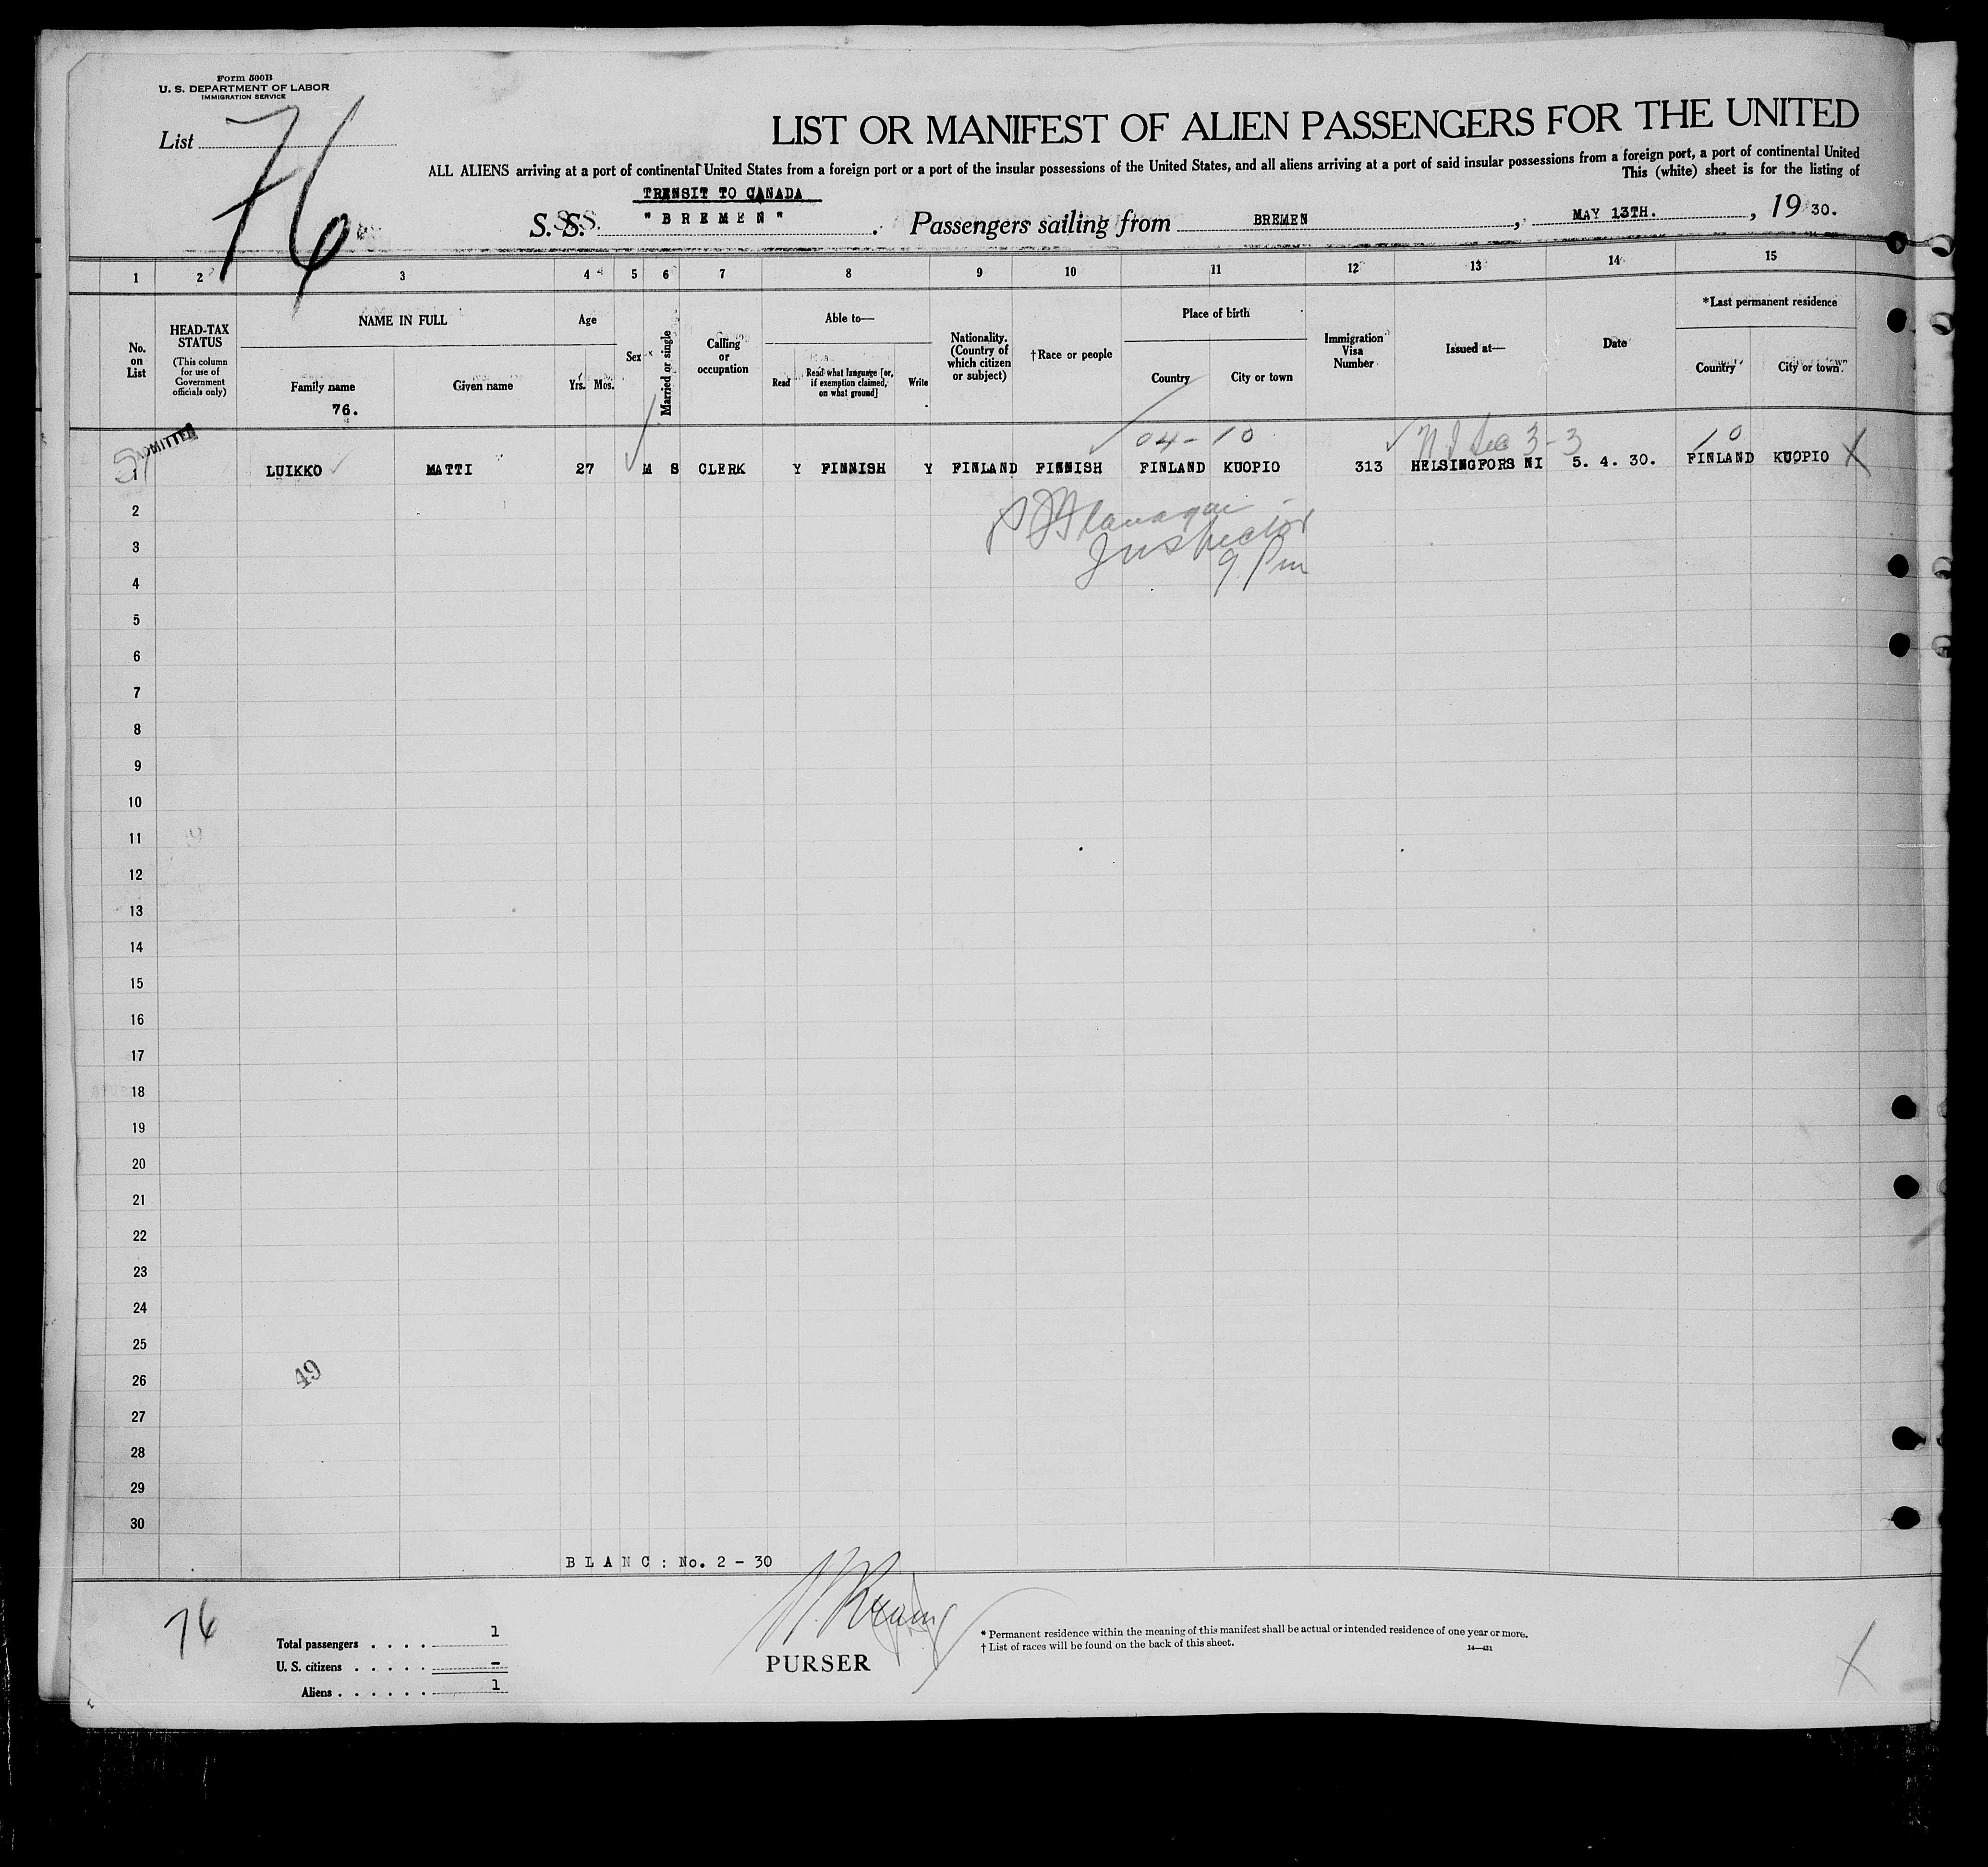 Form 500B
U. S. DEPARTMENT OF LABOR
IMMIGRATION SERVICE
List 76
LIST OR MANIFEST OF ALIEN PASSENGERS FOR THE UNITED
ALL ALIENS arriving at a port of continental United States from a foreign port or a port of the insular possessions of the United States, and all aliens arriving at a port of said insular possessions from a foreign port, a port of continental United
This (white) sheet is for the listing of
TRANSIT TO CANADA
S. S. "BREMEN". Passengers sailing from BREMEN, MAY 13TH., 19 30.
1 2 3 4 5 6 7 8 9 10 11 12 13 14 15
No. on List
HEAD-TAX STATUS
(This column for use of Government officials only)
NAME IN FULL
Family name
Given name
76.
Age
Yrs. Mos.
Sex
Married or single
Calling or occupation
Able to—
Read
Read what language [or, if exemption claimed, on what ground]
Write
Nationality. (Country of which citizen or subject)
†Race or people
Place of birth
Country
City or town
Immigration Visa Number
Issued at—
Date
*Last permanent residence
Country
City or town
ADMITTED
04-10
3-3
10
1 LUIKKO MATTI 27 M S CLERK Y FINNISH Y FINLAND FINNISH FINLAND KUOPIO 313 HELSINGFORS NI 5. 4. 30. FINLAND KUOPIO X
2
Flanagan
3
Inspector
9 Pm
4
5
6
7
8
9
10
11
12
13
14
15
16
17
18
19
20
21
22
23
24
25
26
49
27
28
29
30
BLANC: No. 2 - 30
76
Total passengers . . . . 1
U. S. citizens . . . . . -
Aliens . . . . . . 1
PURSER
* Permanent residence within the meaning of this manifest shall be actual or intended residence of one year or more.
† List of races will be found on the back of this sheet.
14—421
X